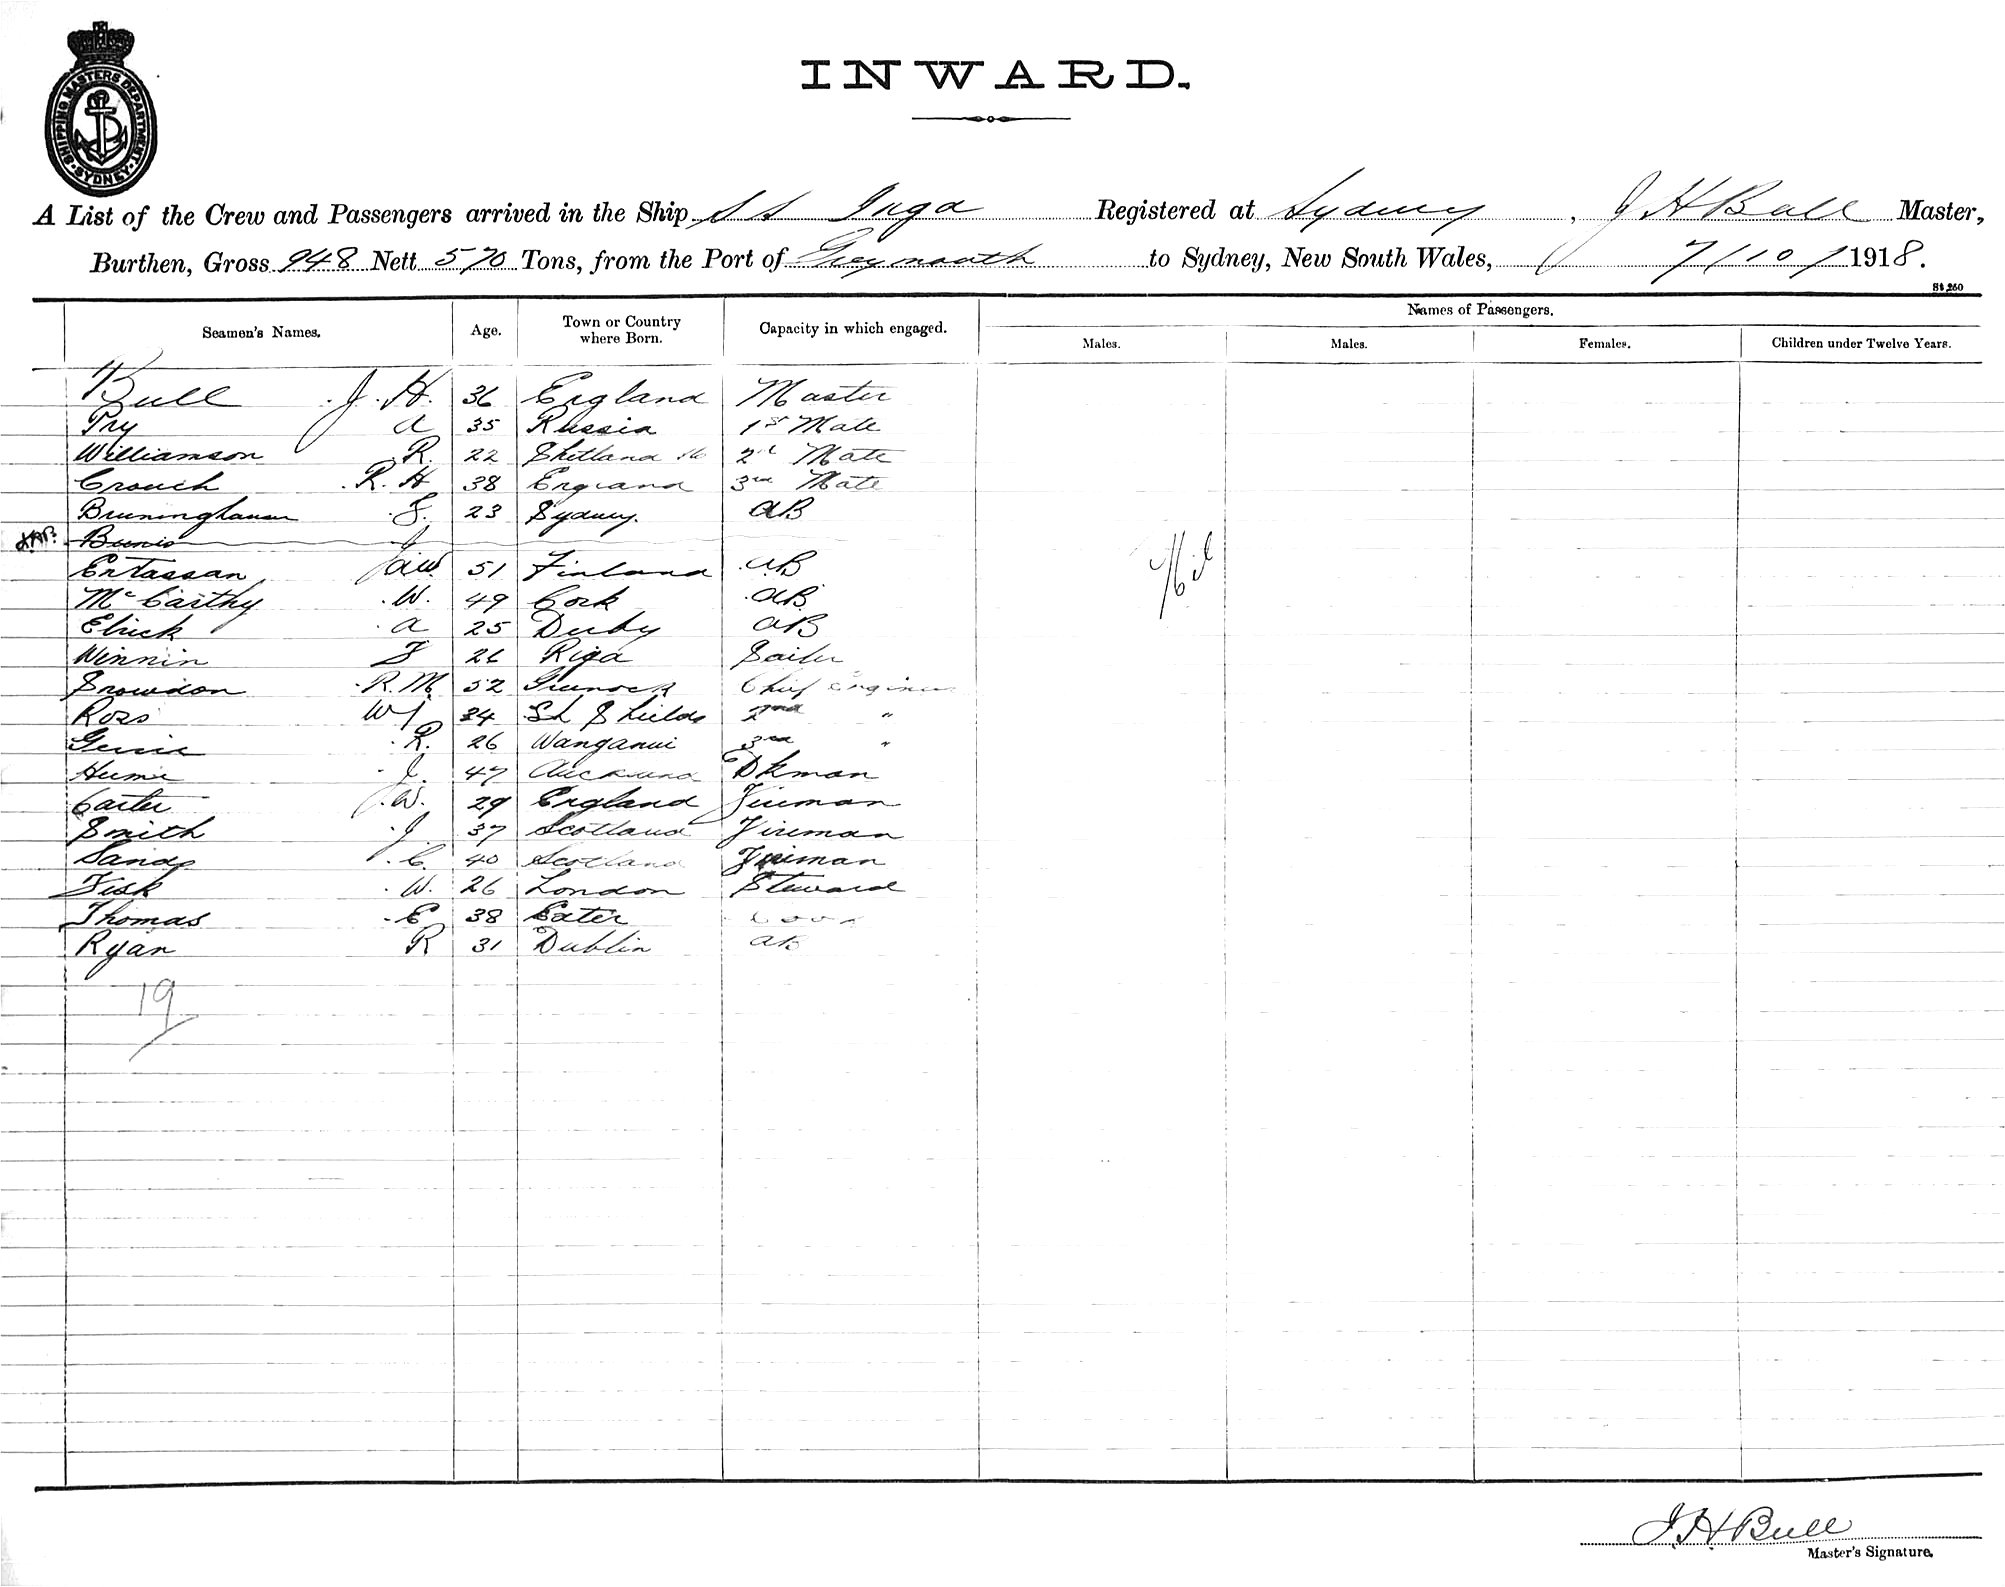 SHIPPING MASTERS DEPARTMENT SYDNEY
INWARD.
A List of the Crew and Passengers arrived in the Ship S S Inga Registered at Sydney, J H Bull Master,
Burthen, Gross 948 Nett 570 Tons, from the Port of Greymouth to Sydney, New South Wales, 7/10/1918.
St 260
Seamen's Names. Age. Town or Country where Born. Capacity in which engaged. Names of Passengers.
Males. Males. Females. Children under Twelve Years.
Bull J. H. 36 England Master
Pry A 35 Russia 1st Mate
Williamson R. 22 Shetland Is 2nd Mate
Crouch R. H 38 England 3rd Mate
Bruninghausen F. 23 Sydney. AB
J
Entassan, AW. 51 Finland AB
McCarthy W. 49 Cork AB
A 25 Derby AB
Winnin F 26 Riga Sailor
Snowdon R. M. 52 Greenock Chief Engineer
Ross W J 24 Sh Shields 2nd "
R. 26 Wanganui 3rd "
Hume J. 47 Auckland Dkman
Carter J. W. 29 England Fireman
Smith J 37 Scotland Fireman
Sands C. 40 Scotland Fireman
Fisk W. 26 London Steward
Thomas E 38 Exter Cook
Ryan R 31 Dublin AB
Nil
19
J. H. Bull
Master's Signature.